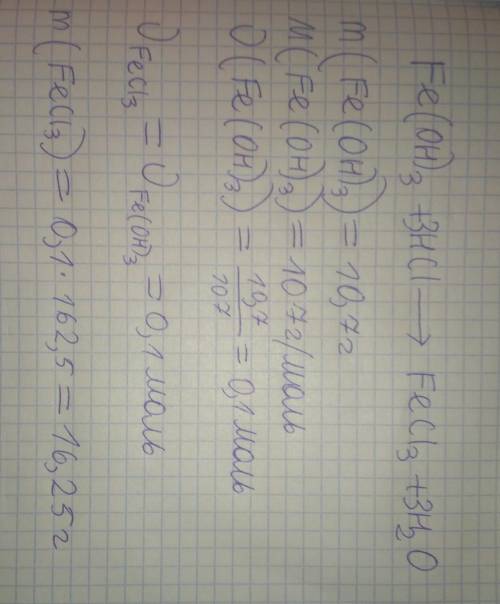 Fe(OH)₃ + 3HCl → FeCl₃ + 3H₂O
m(Fe(OH)₃) = 10,7 г
M(Fe(OH)₃) = 107 г/моль
υ(Fe(OH)₃) = 10,7/107 = 0,1 моль
υ FeCl₃ = υ Fe(OH)₃ = 0,1 моль
m(FeCl₃) = 0,1 · 162,5 = 16,25 г